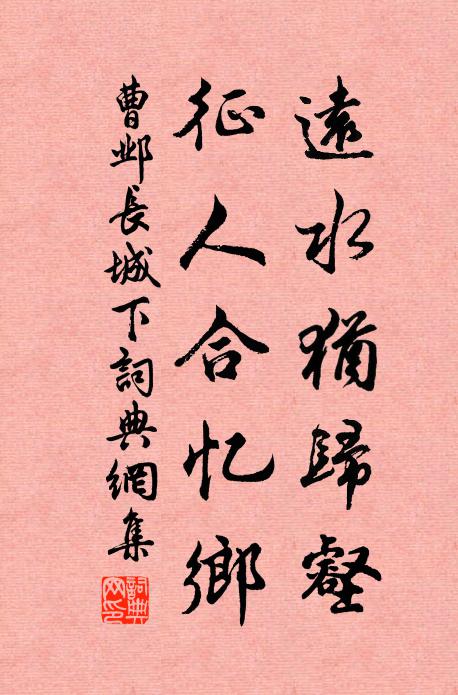 遠水猶歸壑
征人合忆鄉
曹邺長城下詞典網集
詞典網印